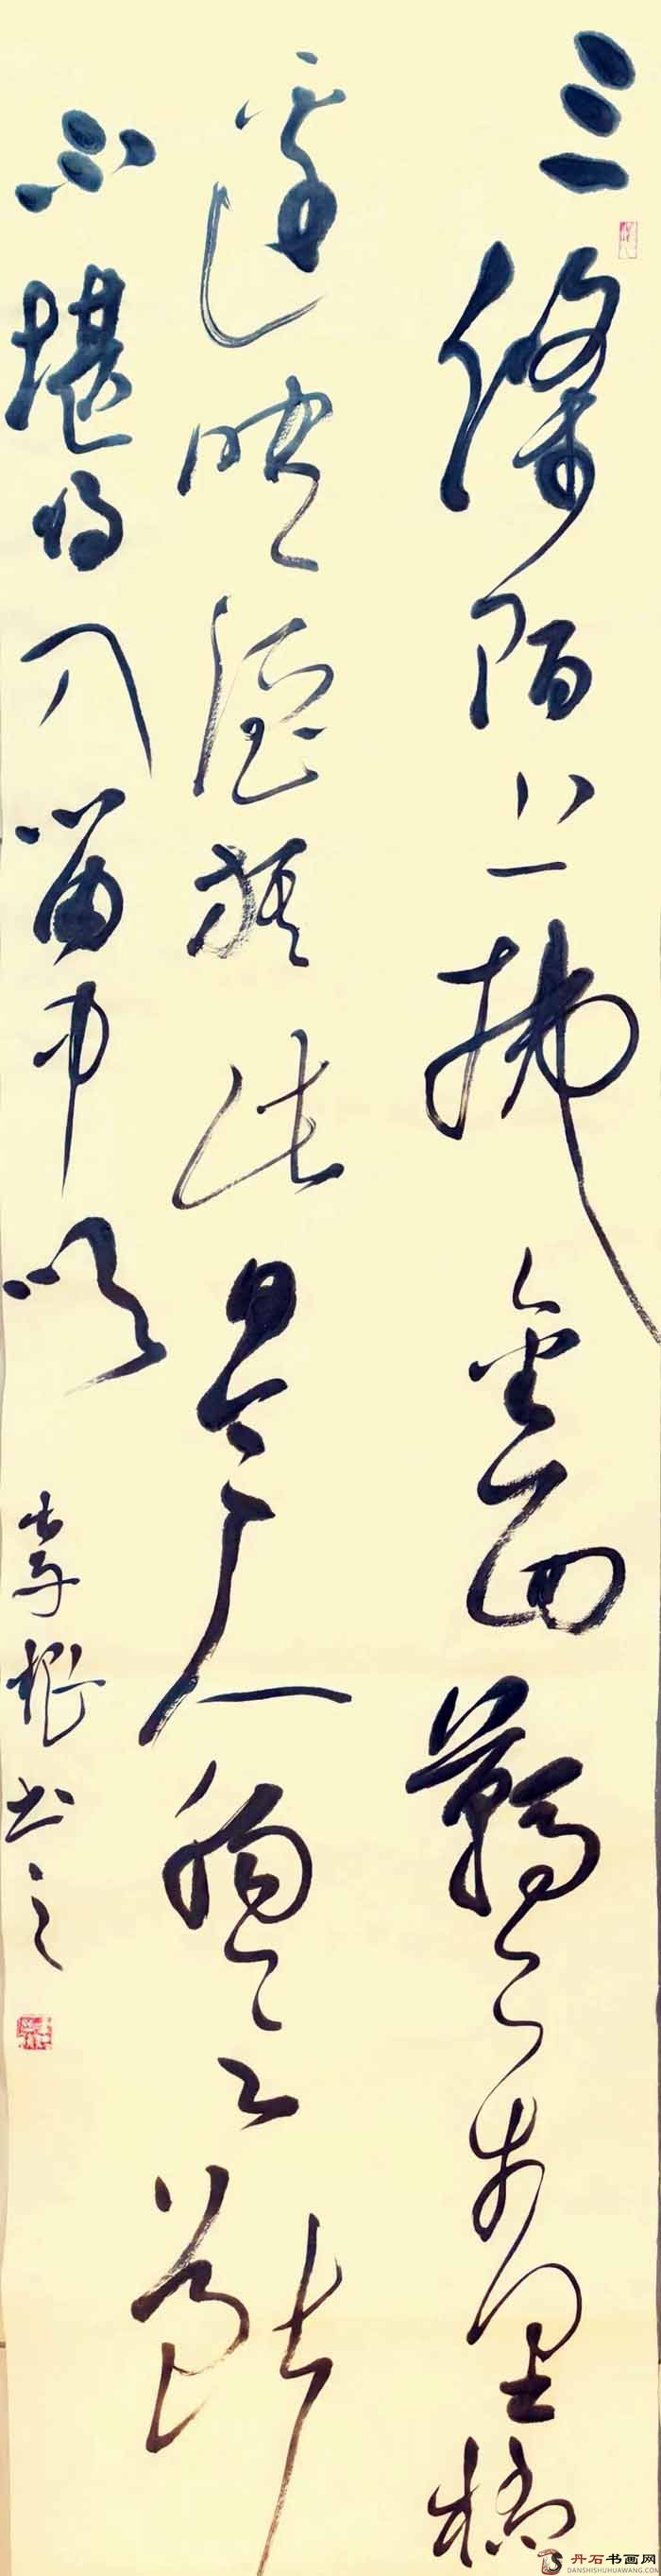 三條陌上拂金羈萬里橋
邊映酒旗此日令人腸欲斷
不堪將入笛中吹
李根书之
丹石书画网
DANSHISHUHUAWANG.COM